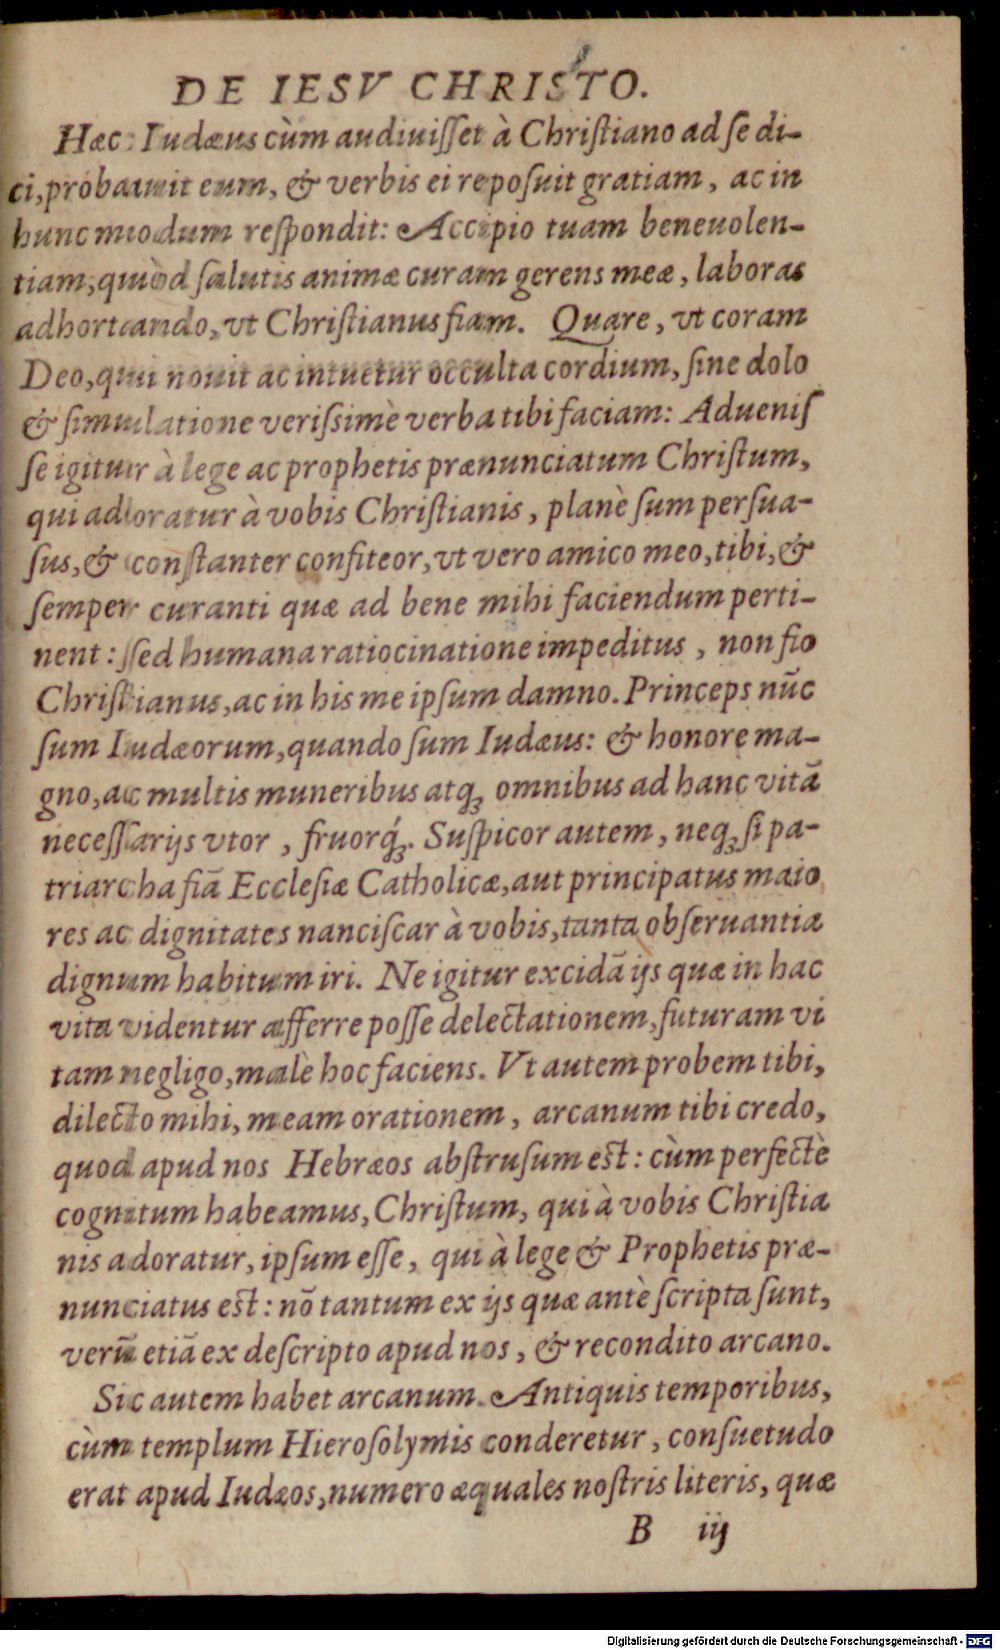 DE IESV CHRISTO.
Hæc Iudæus cùm audiuiſſet à Chriſtiano ad ſe di-
ci, probauit eum, & verbis ei repoſuit gratiam, ac in
hunc modum reſpondit: Accipio tuam beneuolen-
tiam, quòd ſalutis animæ curam gerens meæ, laboras
adhortando, vt Chriſtianus fiam. Quare, vt coram
Deo, qui nouit ac intuetur occulta cordium, ſine dolo
& ſimulatione veriſsimè verba tibi faciam: Adueniſ
ſe igitur à lege ac prophetis prænunciatum Chriſtum,
qui adoratur à vobis Chriſtianis, planè ſum perſua-
ſus, & conſtanter confiteor, vt vero amico meo, tibi, &
ſemper curanti quæ ad bene mihi faciendum perti-
nent: ſed humana ratiocinatione impeditus, non fio
Chriſtianus, ac in his me ipſum damno. Princeps nũc
ſum Iudæorum, quando ſum Iudæus: & honore ma-
gno, ac multis muneribus atqꝫ omnibus ad hanc vitã
neceſſarijs vtor, fruorq́ꝫ. Suſpicor autem, neqꝫ ſi pa-
triarcha fiã Eccleſiæ Catholicæ, aut principatus maio
res ac dignitates nanciſcar à vobis, tanta obſeruantia
dignum habitum iri. Ne igitur excidã ijs quæ in hac
vita videntur afferre poſſe delectationem, futuram vi
tam negligo, malè hoc faciens. Vt autem probem tibi,
dilecto mihi, meam orationem, arcanum tibi credo,
quod apud nos Hebræos abſtruſum est: cùm perfectè
cognitum habeamus, Chriſtum, qui à vobis Chriſtia
nis adoratur, ipſum eſſe, qui à lege & Prophetis præ-
nunciatus est: nõ tantum ex ijs quæ antè ſcripta ſunt,
verũ etiã ex deſcripto apud nos, & recondito arcano.
Sic autem habet arcanum. Antiquis temporibus,
cùm templum Hieroſolymis conderetur, conſuetudo
erat apud Iudæos, numero æquales noſtris literis, quæ
B iij
Digitalisierung gefördert durch die Deutsche Forschungsgemeinschaft - DFG